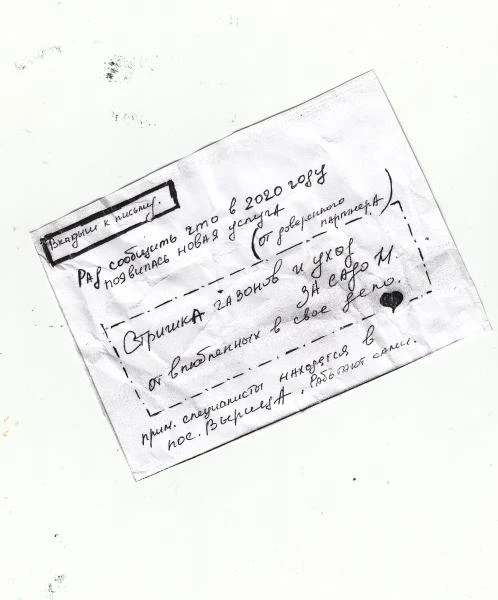 Вкладыш к письму.
РАД сообщить что в 2020 году
появилась новая услуга
(от доверенного
партнерА)
Стрижка газонов и уход
за садом.
от влюбленных в свое дело.
прим. специалисты находятся в
пос. ВырицА. Работают сами.